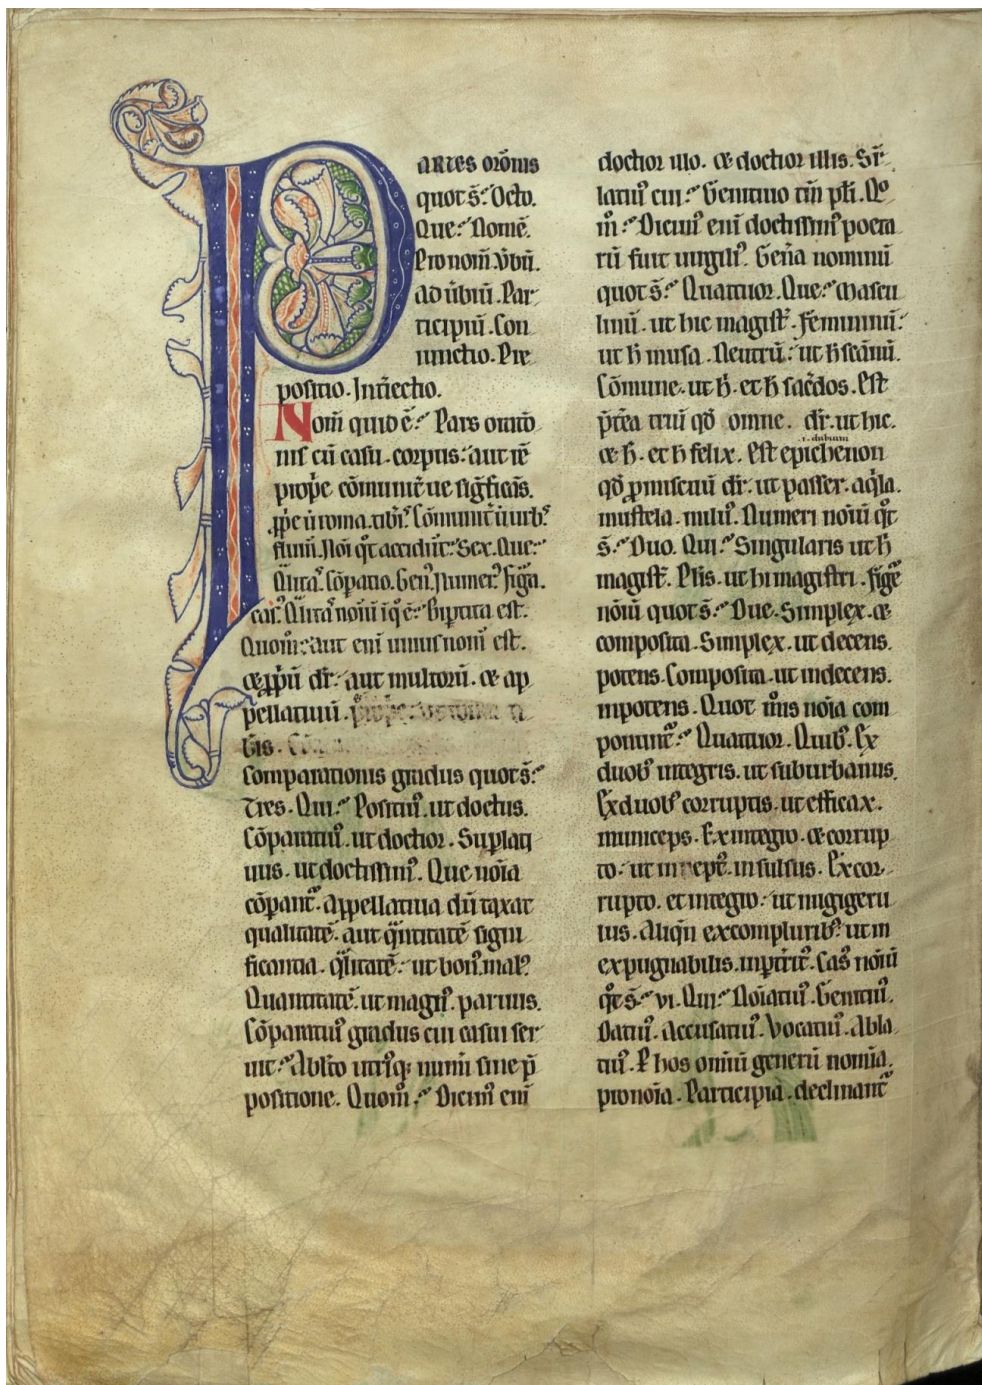 PARTES orōnis
quot s̄? Octo.
Que? Nom̄.
Pronom̄. Ỽbū.
aduerbiū. Par
ticipiū. Con
iunctio. Pre
positio. Int̄iectio.
Nom̄ quid ē? Pars oratio
nis cū casu. corpus aut rē
prop̄e cōmunit̄ ue sig̃ficās.
flum̄. Noī q̊t accidūt? Sex. Que?
Qlitas. Cōpatio. Gen᾽. Numer᾽. Figa.
cas᾽. Qlitas noīu ī q̊ ē? Bip̱tita est.
Quom̊? aut enī unius nom̄ est.
& ꝓpū dr̄. aut multorū. & ap
pellatiuū.
Comparationis gradus quot s̄?
Tres. Qui? Positiu᾽. ut doctus.
Cōparatiu᾽. ut doctior. Suplati
uus. ut doctissim᾽. Que noīa
cōpant᾽. appellatiua dūtaxat
qualitatē. aut q̃ntitatē signi
ficantia. q̃litatē. ut bon᾽. mal᾽.
Quantitatē. ut magn᾽. paruus.
Cōparatiu᾽ gradus cui casui ser
uit? Ablto utrīq; num̄i sine p̄
positione. Quom̊? Dicim᾽ enī
doctior illo. & doctior illis. Sup̄
latiu᾽ cui? Genitiuo tm̄ pl̄i. Qo
m̊? Dicim᾽ enī doctissim᾽ poeta
rū fuit uirgili᾽. Geña nominū
quot s̄? Quattuor. Que? Mascu
linū. ut hic magist̄. Femininū.
ut h̄ musa. Neutrū. ut h̄ scānū.
Cōmune. ut h̄. et h̄ sac̄dos. Est
p̄t̄ea triū qd̄ omne. dr̄. ut hic.
& h̄. et h̄ felix. Est epichenon
.i. dubium
qd̄ ꝓmiscuū dr̄. ut passer. aq̊la.
mustela. milu᾽. Numeri noīu q̊t
s̄? Duo. Qui? Singularis ut h̄
magist̄. Pl̄is. ut hi magistri. Fige
noīu quot s̄? Due. Simplex. &
composita. Simplex. ut decens.
potens. Composita. ut indecens.
inpotens. Quot m̊is noīa com
ponunt᾽? Quattuor. Quib᾽. Ex
duob᾽ integris. ut suburbanus.
Ex duob᾽ corruptis. ut efficax.
municeps. Ex integro. & corrup
to. ut inept᾽. insulsus. Ex cor
rupto. et integro. ut nugigeru
lus. Aliqn̄ ex complurib᾽. ut in
expugnabilis. inp̱t̄rit᾽. Cas᾽ noīu
q̊t s̄? vi. Qui? Noīatiu᾽. Genitiu᾽.
Datiu᾽. Accusatiu᾽. Vocatiu᾽. Abla
tiu᾽. P̱ hos omīu generū nomīa.
pronoīa. Participia. declinant᾽